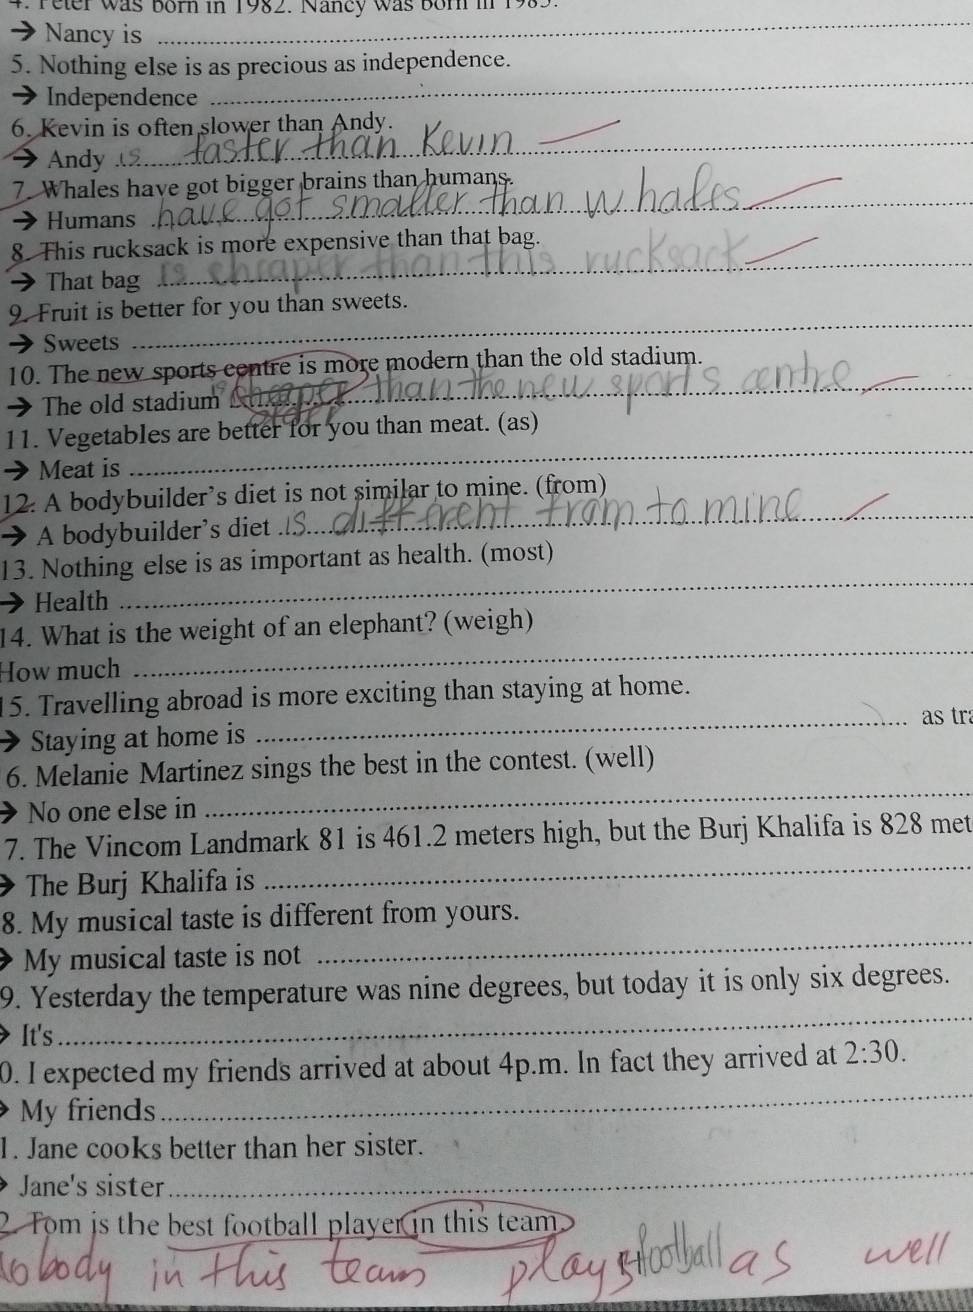 4. Peter was born in 1982. Nancy was born in 1985.
→ Nancy is
5. Nothing else is as precious as independence.
→ Independence
6. Kevin is often slower than Andy.
→ Andy is faster than Kevin
7. Whales have got bigger brains than humans.
→ Humans have got smaller than whales
8. This rucksack is more expensive than that bag.
→ That bag is cheaper than this rucksack
9. Fruit is better for you than sweets.
→ Sweets
10. The new sports centre is more modern than the old stadium.
→ The old stadium is cheaper than the new sports centre
older
11. Vegetables are better for you than meat. (as)
→ Meat is
12. A bodybuilder's diet is not similar to mine. (from)
→ A bodybuilder's diet is different from to mine
13. Nothing else is as important as health. (most)
→ Health
14. What is the weight of an elephant? (weigh)
How much
15. Travelling abroad is more exciting than staying at home.
→ Staying at home is as tra
6. Melanie Martinez sings the best in the contest. (well)
→ No one else in
7. The Vincom Landmark 81 is 461.2 meters high, but the Burj Khalifa is 828 met
→ The Burj Khalifa is
8. My musical taste is different from yours.
→ My musical taste is not
9. Yesterday the temperature was nine degrees, but today it is only six degrees.
→ It's
0. I expected my friends arrived at about 4p.m. In fact they arrived at 2:30.
→ My friends
1. Jane cooks better than her sister.
→ Jane's sister
2. Tom is the best football player in this team.
Nobody in this team plays football as well